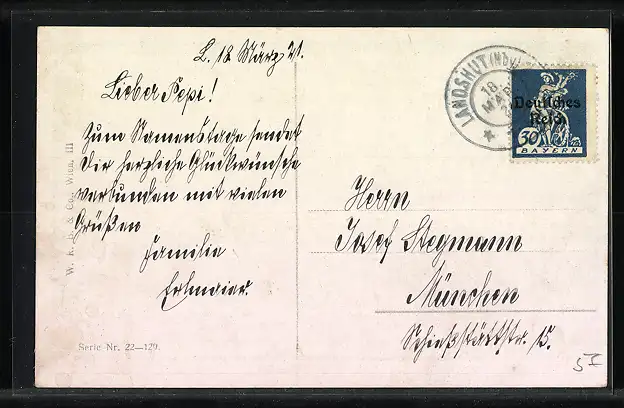 L. 18 März 21.
Lieber Pepi!
Zum Namenstage sendet
Dir herzliche Glückwünsche
verbunden mit vielen
Grüßen
Familie
Erlmaier.
W. R. B. & Co., Wien, III
Serie Nr. 22—129.
LANDSHUT
18
MÄR
Deutsches
Reich
30
BAYERN
Herrn
Josef Stegmann
München
Schießstättstr. 15.